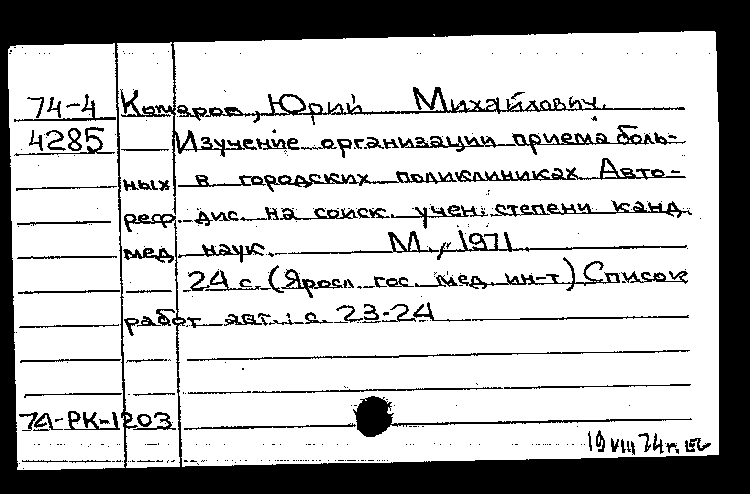 74-4 Комаров, Юрий Михайлович.
4285 Изучение организации приема боль-
ных в городских поликлиниках Авто-
реф. дис. на соиск. учен. степени канд.
мед. наук. М., 1971.
24 с. (Яросл. гос. мед. ин-т) Список
работ авт.: с. 23-24
74-РК-1203
19 VIII 74 г.